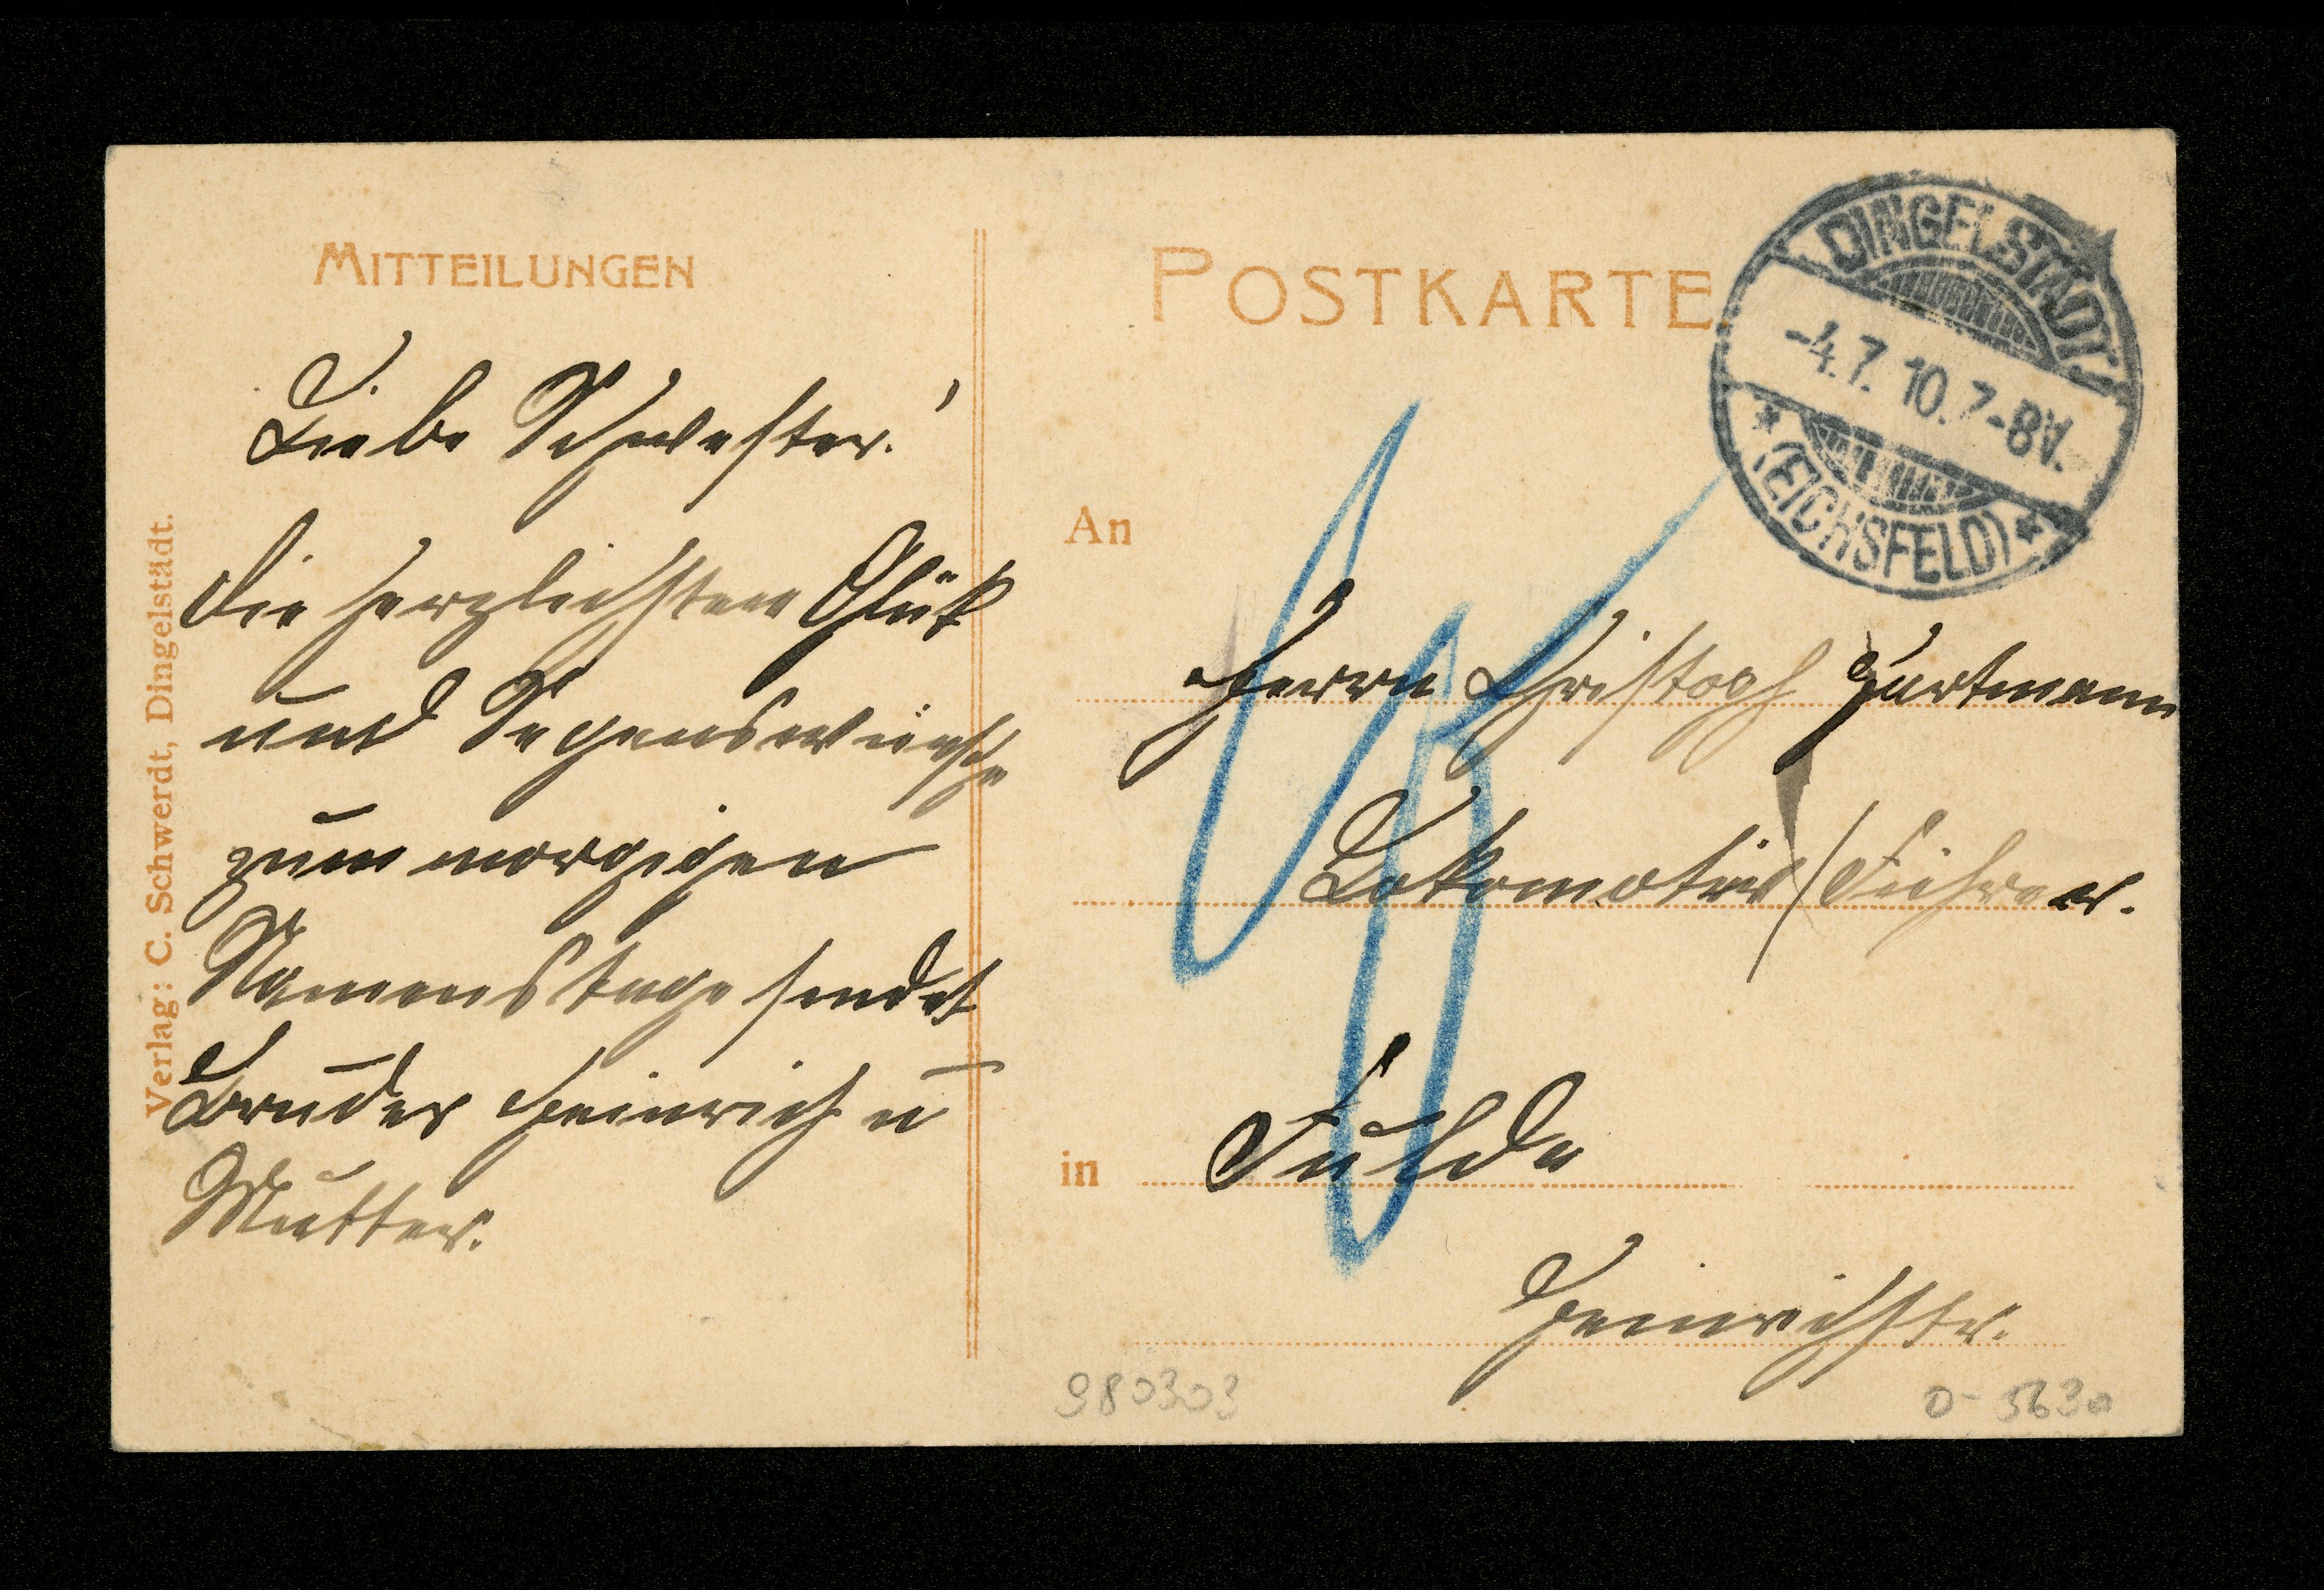 MITTEILUNGEN
Liebe Schwester!
die herzlichsten Glük
und Segenswünsche
zum morgigen
Namenstage sendet
Bruder Heinrich u
Mutter.
Verlag: C. Schwerdt, Dingelstädt.
POSTKARTE
DINGELSTÄDT
-4.7.10.7-8V.
* (EICHSFELD) *
An
Herrn Christoph Hartmann
Lokomotiv/Führer.
in Fulda
Heinrichstr.
980303
0-5630